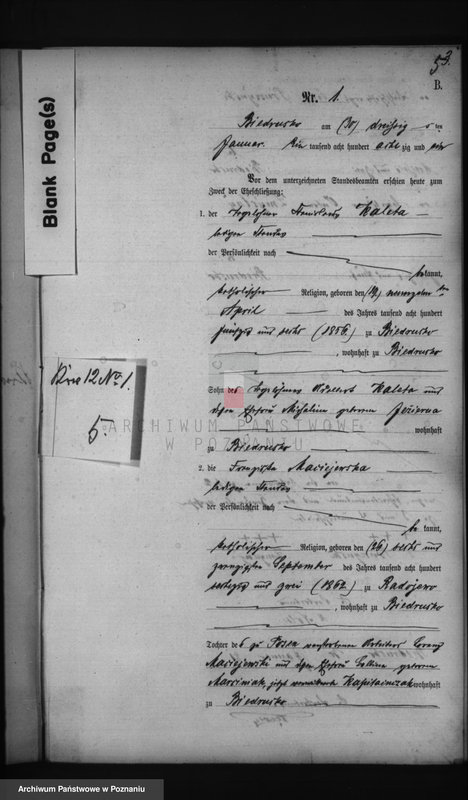 53.
B.
Nr. 1.
Biedrusko am (30) dreißig ten
Januar. Ein tausend acht hundert achtzig und ein
Vor dem unterzeichneten Standesbeamten erschien heute zum
Zweck der Eheschließung:
1. der Tagelöhner Stanislaus Kaleta
ledigen Standes
der Persönlichkeit nach
bekannt,
katholischer Religion, geboren den (19) neunzehn ten
April des Jahres tausend acht hundert
fünfzig und sechs (1856) zu Biedrusko
, wohnhaft zu Biedrusko
Sohn des Tagelöhners Adalbert Kaleta und
dessen Ehefrau Michalina geborene
wohnhaft
zu Biedrusko
2. die Franziska Maciejewska
ledigen Standes
der Persönlichkeit nach
bekannt,
katholischer Religion, geboren den (26) sechs und
zwanzigsten September des Jahres tausend acht hundert
sechszig und zwei (1862) zu Radojewo
, wohnhaft zu Biedrusko
Tochter des zu Posen verstorbenen Arbeiters Lorenz
Maciejewski und dessen Ehefrau geborene
Marciniak, jetzt wohnhaft
zu Biedrusko
Blank Page(s)
No 1.
5.
ARCHIWUM PAŃSTWOWE
W POZNANIU
Archiwum Państwowe w Poznaniu